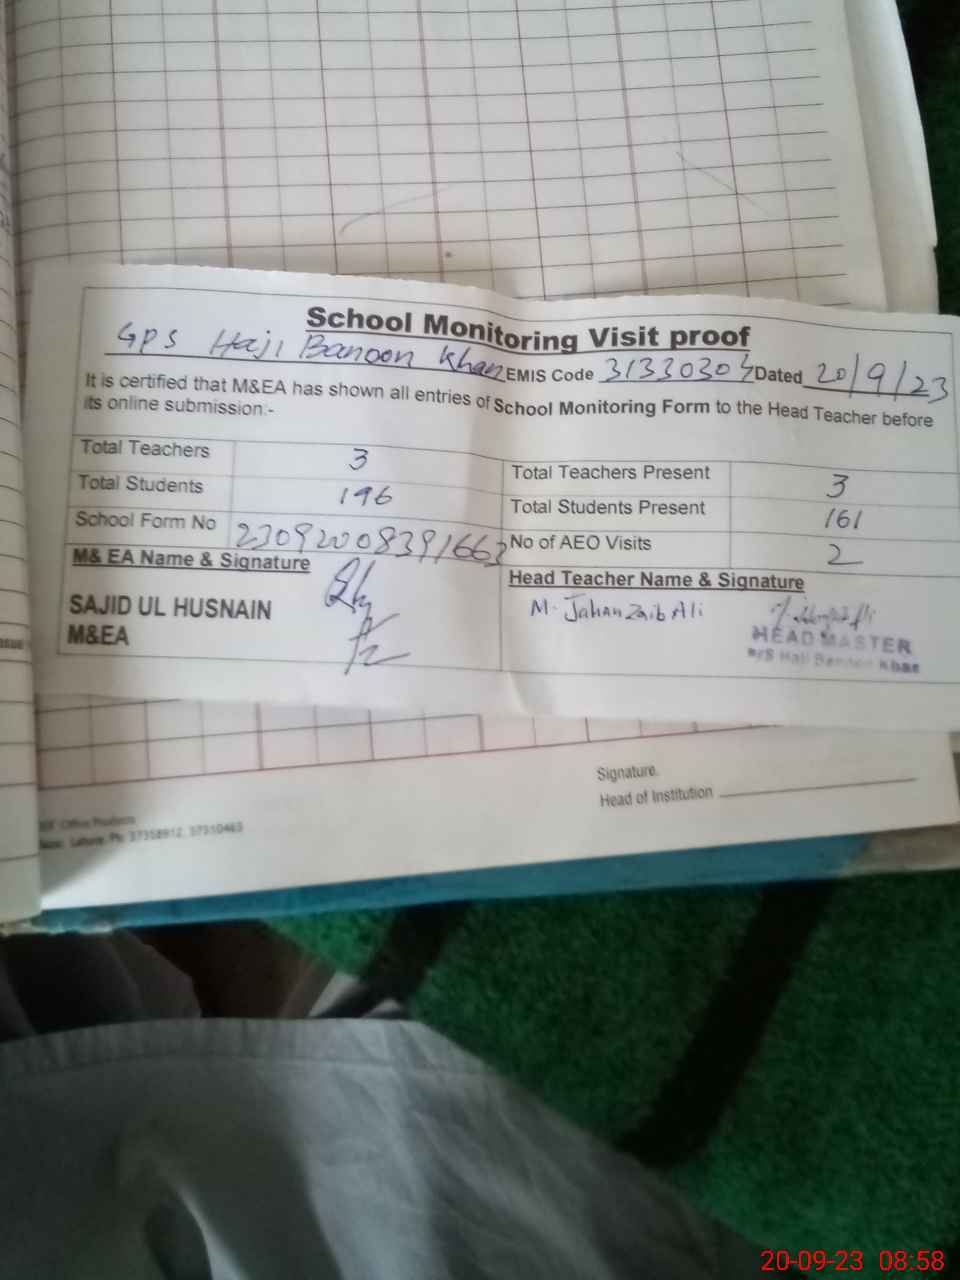 School Monitoring Visit proof
GPS Haji Banoon Khan EMIS Code 31330304 Dated 20/9/23
It is certified that M&EA has shown all entries of School Monitoring Form to the Head Teacher before
its online submission:-
Total Teachers 3 Total Teachers Present 3
Total Students 196 Total Students Present 161
School Form No 2309200839166 No of AEO Visits 2
M& EA Name & Signature
Head Teacher Name & Signature
SAJID UL HUSNAIN
M&EA
M. Jahan Zaib Ali
HEAD MASTER
Haji Khan
Signature.
Head of Institution
Office Products
Lahore. Ph: 37358912, 37310463
20-09-23 08:58